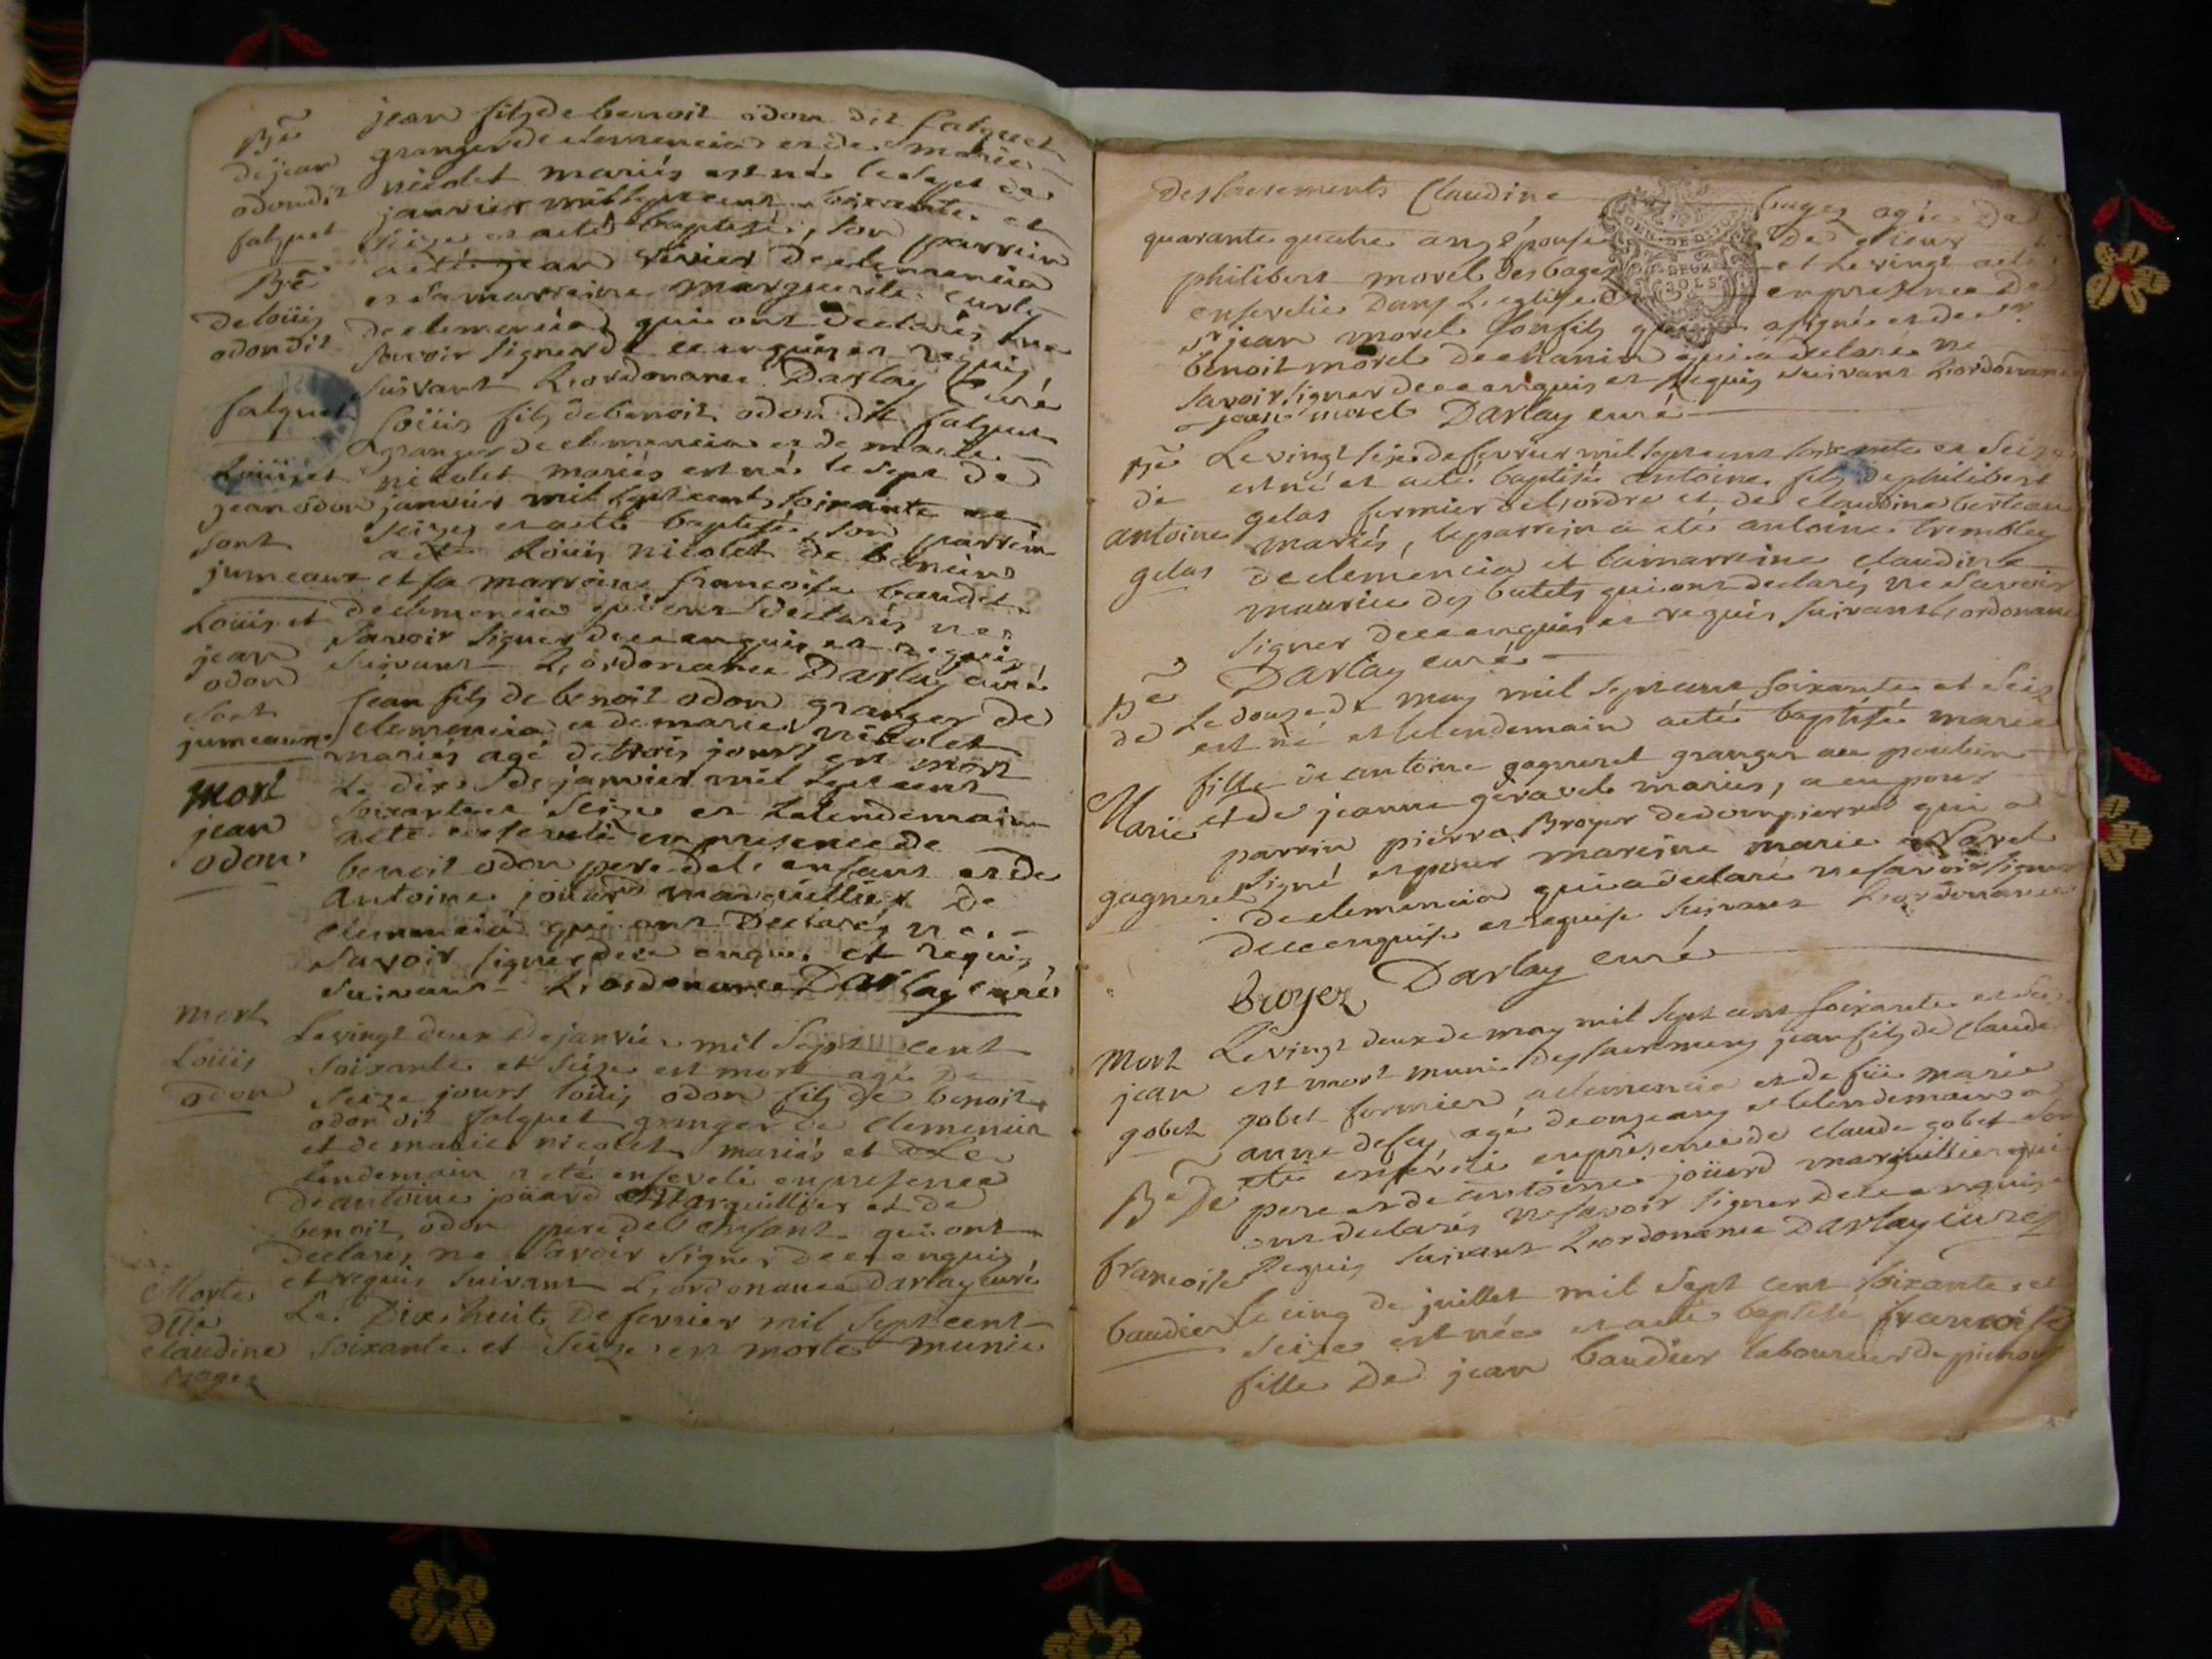 Bê
de jean
odon dit
falquet
jean fils de benoit odon dit falquet
granger de clemencia et de marie
nicolet mariés est né le sept de
janvier mil sept cent soixante et
seize et a eté baptisé, son parrein
a eté jean de clemencia
et sa marreine marguerite curty
de clemencia qui ont declarés ne
savoir signer de ce enquis et requis
suivant L'ordonance Darlay Curé
Bê
de loüis
odon dit
falquet
Loüis et
jean odon
sont
jumeaux
Loüis fils de benoit odon dit falquet
granger de clemencia et de marie
nicolet mariés est né le sept de
janvier mil sept cent soixante et
seize et a eté baptisé, son parrein
a eté Loüis nicolet de
et sa marreine francoise baudet
de clemencia qui ont declarés ne
savoir signer de ce enquis et requis
suivant L'ordonance Darlay curé
Loüis et
jean
odon
sont
jumeaux
mort
jean
odon
jean fils de benoit odon granger de
clemencia et de marie nicolet
mariés agé de trois jours est mort
Le dix de janvier mil sept cent
soixante et seize et Lelendemain
a eté enseveli en presence de
benoit odon pere del'enfant et de
Antoine joüard marguillier de
clemencia qui ont declarés ne
savoir signer de ce enquis et requis
suivant L'ordonance Darlay curé
mort
Loüis
odon
Le vingt deux de janvier mil Sept cent
soixante et seize est mort agé de
seize jours loüis odon fils de benoit
odon dit falquet granger de clemencia
et de marie nicolet mariés et Le
lendemain a eté enseveli en presence
de antoine joüard Marguillier et de
benoit odon pere del'enfant qui ont
declarés ne savoir signer de ce enquis
et requis suivant L'ordonance Darlay curé
Morte
claudine
bages
Le Dix huit De fevrier mil Sept cent
soixante et seize est morte munie
des sacrements Claudine bages agée de
quarante quatre ans épouse de sieur
philibert morel des bages et Le vingt a eté
ensevelie Dans L'eglise en presence de
Sr jean morel son fils qui a signé et de Sr
benoit morel de chanin qui a declaré ne
savoir signer de ce enquis et requis suivant L'ordonance
jean morel Darlay curé
Bê
de
antoine
gelas
Le vingt six de fevrier mil sept cent soixante et seize
est né et a eté baptisé antoine fils de philibert
gelas fermier del'ordre et de claudine
mariés, le parrein a eté antoine trembley
de clemencia et la marreine claudine
maurice des butets qui ont declarés ne savoir
signer de ce enquis et requis suivant L'ordonance
Darlay curé
Bê
de
Marie
gagneret
Le douze de may mil sept cent soixante et seize
est né et lelendemain a eté baptisé marie
fille de antoine gagneret granger au
et de jeanne geravel mariés, a eu pour
parrein pierre Broyer de dompierre qui a
signé et pour mareine marie
de clemencia qui a declaré ne savoir signer
de ce enquise et requise suivant L'ordonance
broyer Darlay curé
mort
jean
gobet
Le vingt deux de may mil Sept cent soixante et seize
est mort muni des sacremens jean fils de claude
gobet fermier a clemencia et de füe marie
anne defay agé de onze ans et lelendemain a
eté enseveli en presence de claude gobet son
pere et de antoine joüard marguillier qui
ont declarés ne savoir signer de ce enquis
requis suivant L'ordonance Darlay curé
Bê de
francoise
baudier
Le cinq de juillet mil Sept cent soixante et
seize est née et a eté baptisée francoise
fille de jean baudier laboureur de